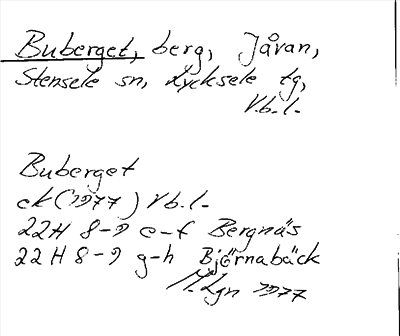 Buberget, berg, Jåvan,
Stensele sn, Lycksele tg,
V.b.l.
Buberget
ek (1977) Vb.l.
22H 8-9 e-f Bergnäs
22H 8-9 g-h Björnabäck
M.Lgn 1977